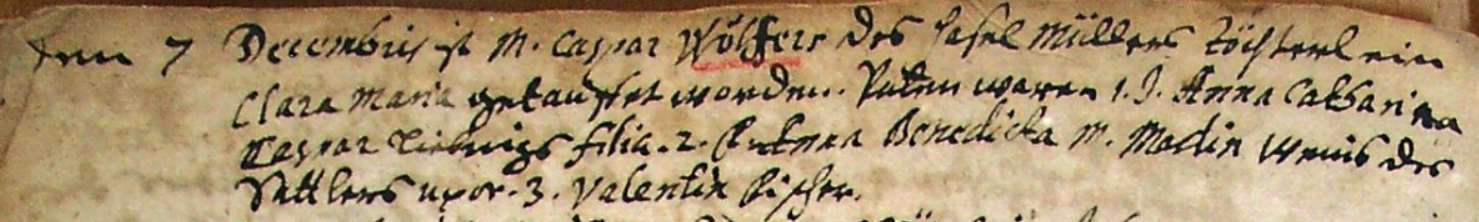 den 7 Decembris ist M. Caspar Wölffers des Hasel Müllers Töchterlein
Clara Maria getauffet worden. Paten waren 1. J. Anna Catharina
Caspar filia. 2. Benedicta M. Martin des
Sattlers uxor. 3. Valentin Fischer.